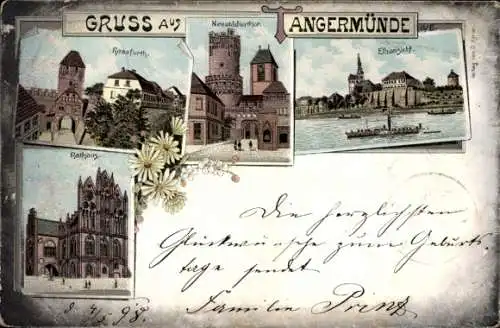 GRUSS AUS TANGERMÜNDE a/E.
Neustädterthor.
Elbansicht.
Rathaus.
Die herzlichsten
Glückwünsche zum Geburts
tage sendet
Familie Prinz
8 4/ 98.